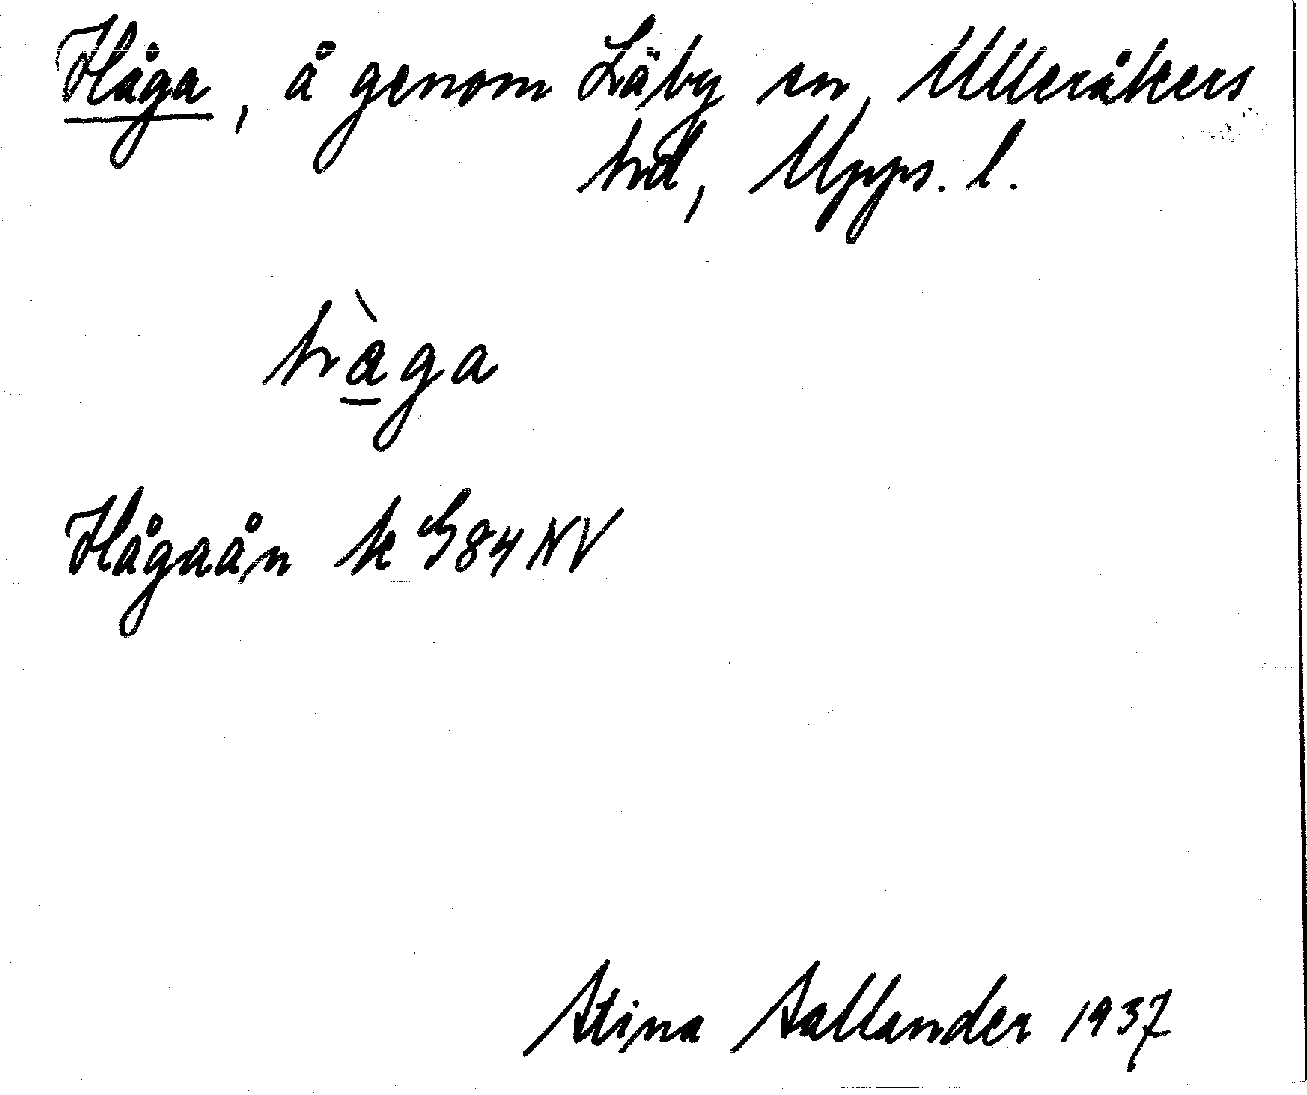 Håga, å genom Läby sn, Ulleråkers
hd, Upps. l.
hàga
Hågaån k G84NV
Stina Sallander 1937